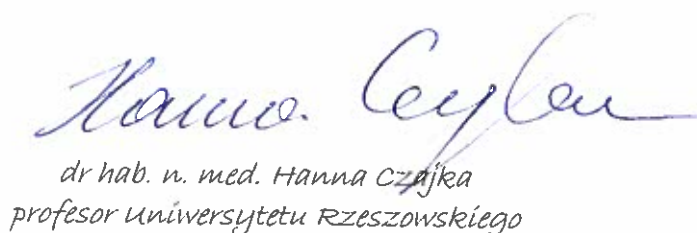 Hanna Czajka
dr hab. n. med. Hanna Czajka
profesor Uniwersytetu Rzeszowskiego